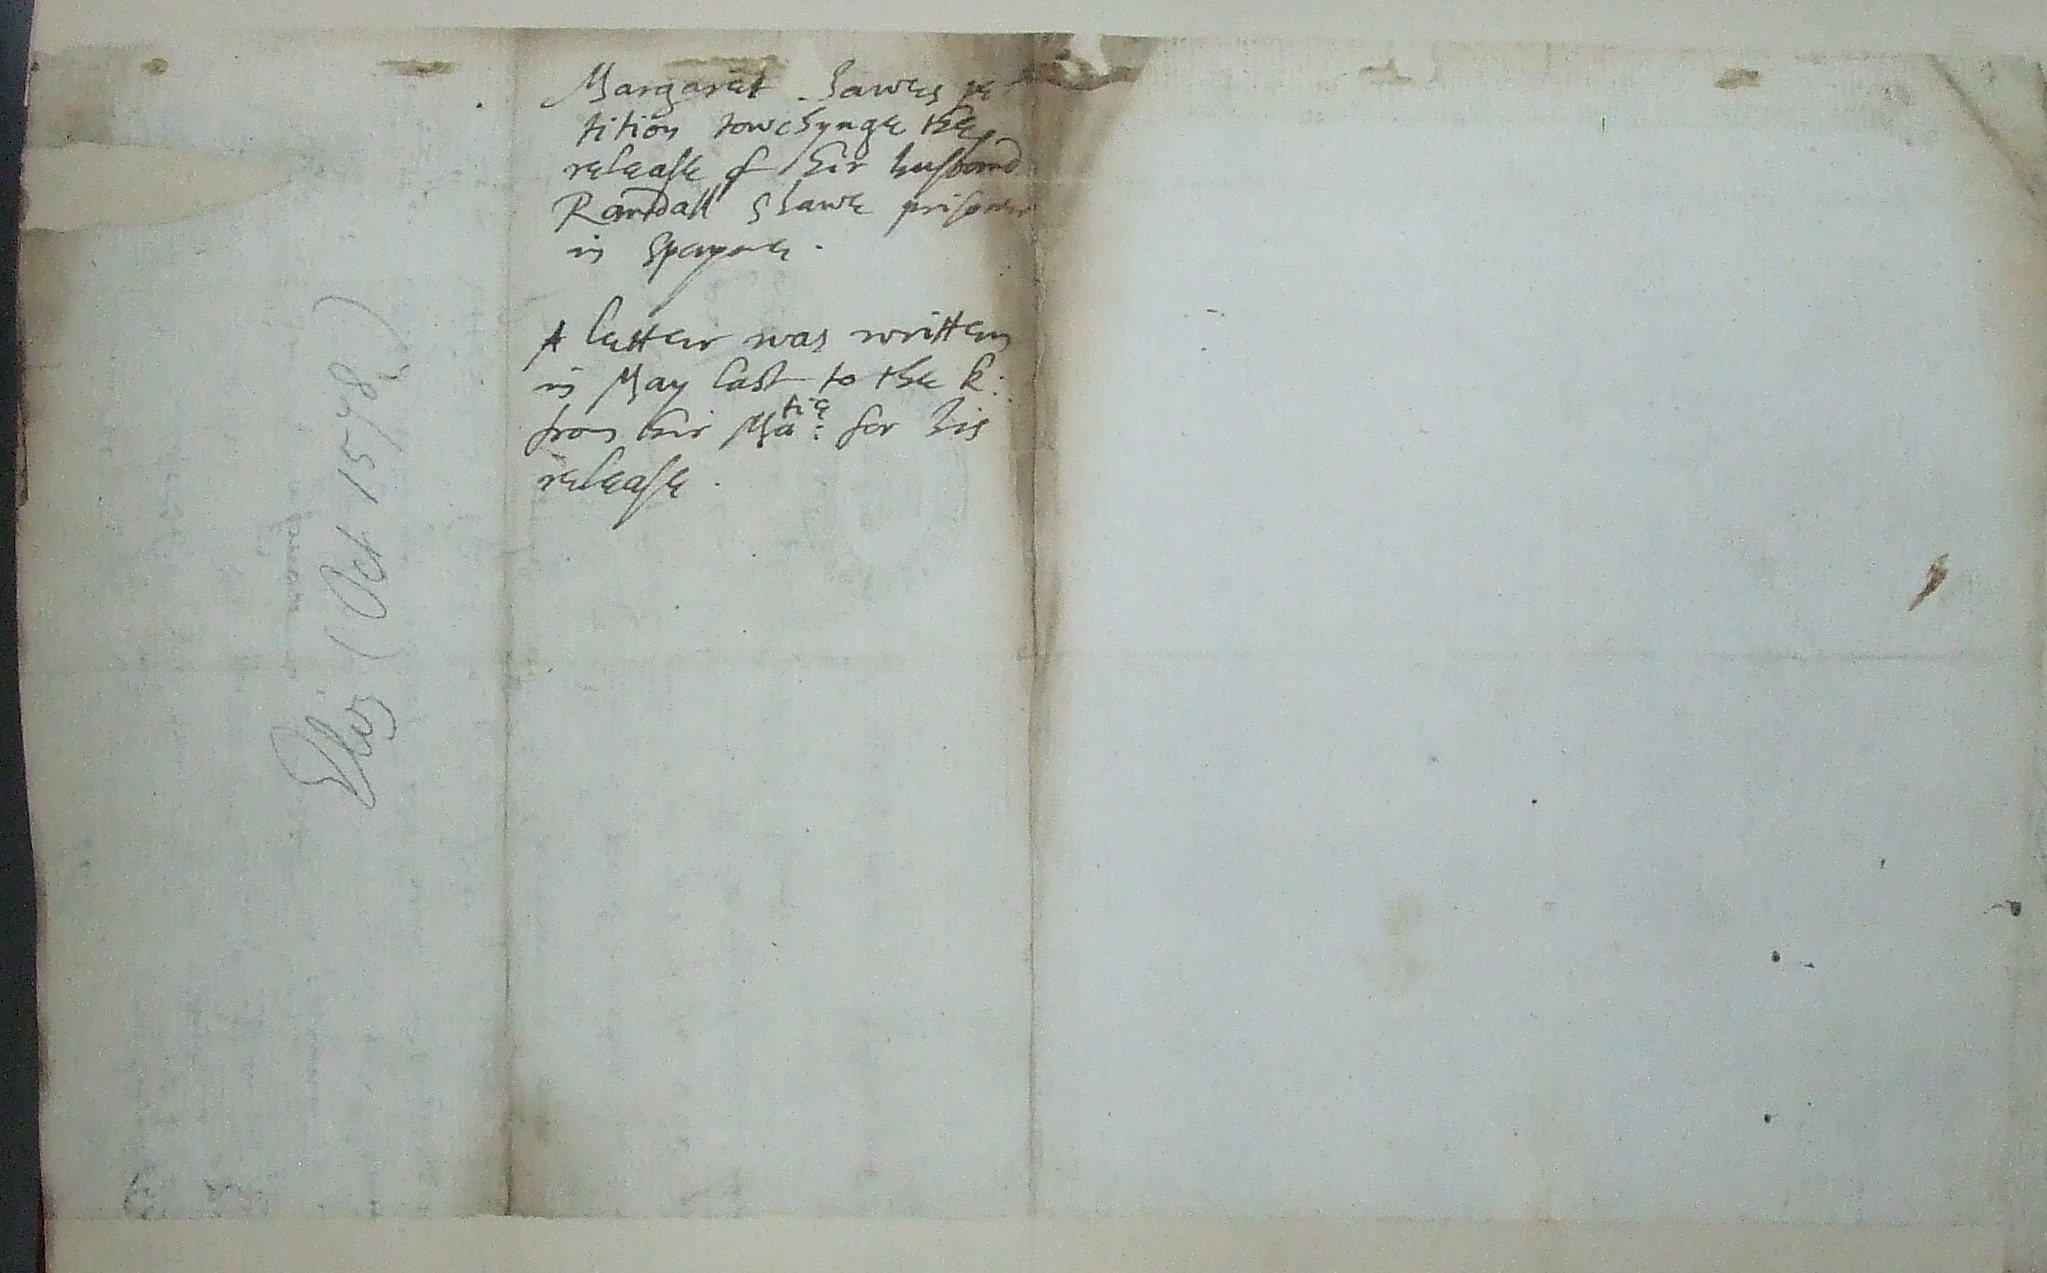 Margaret Shawes pe
tition towchynge the
release of hir husband
Randall Shawe prisoner
in Spayne.
A letter was written
in May last to the k:
from hir Ma^tie: for his
release.
Eliz (Oct 1578?)